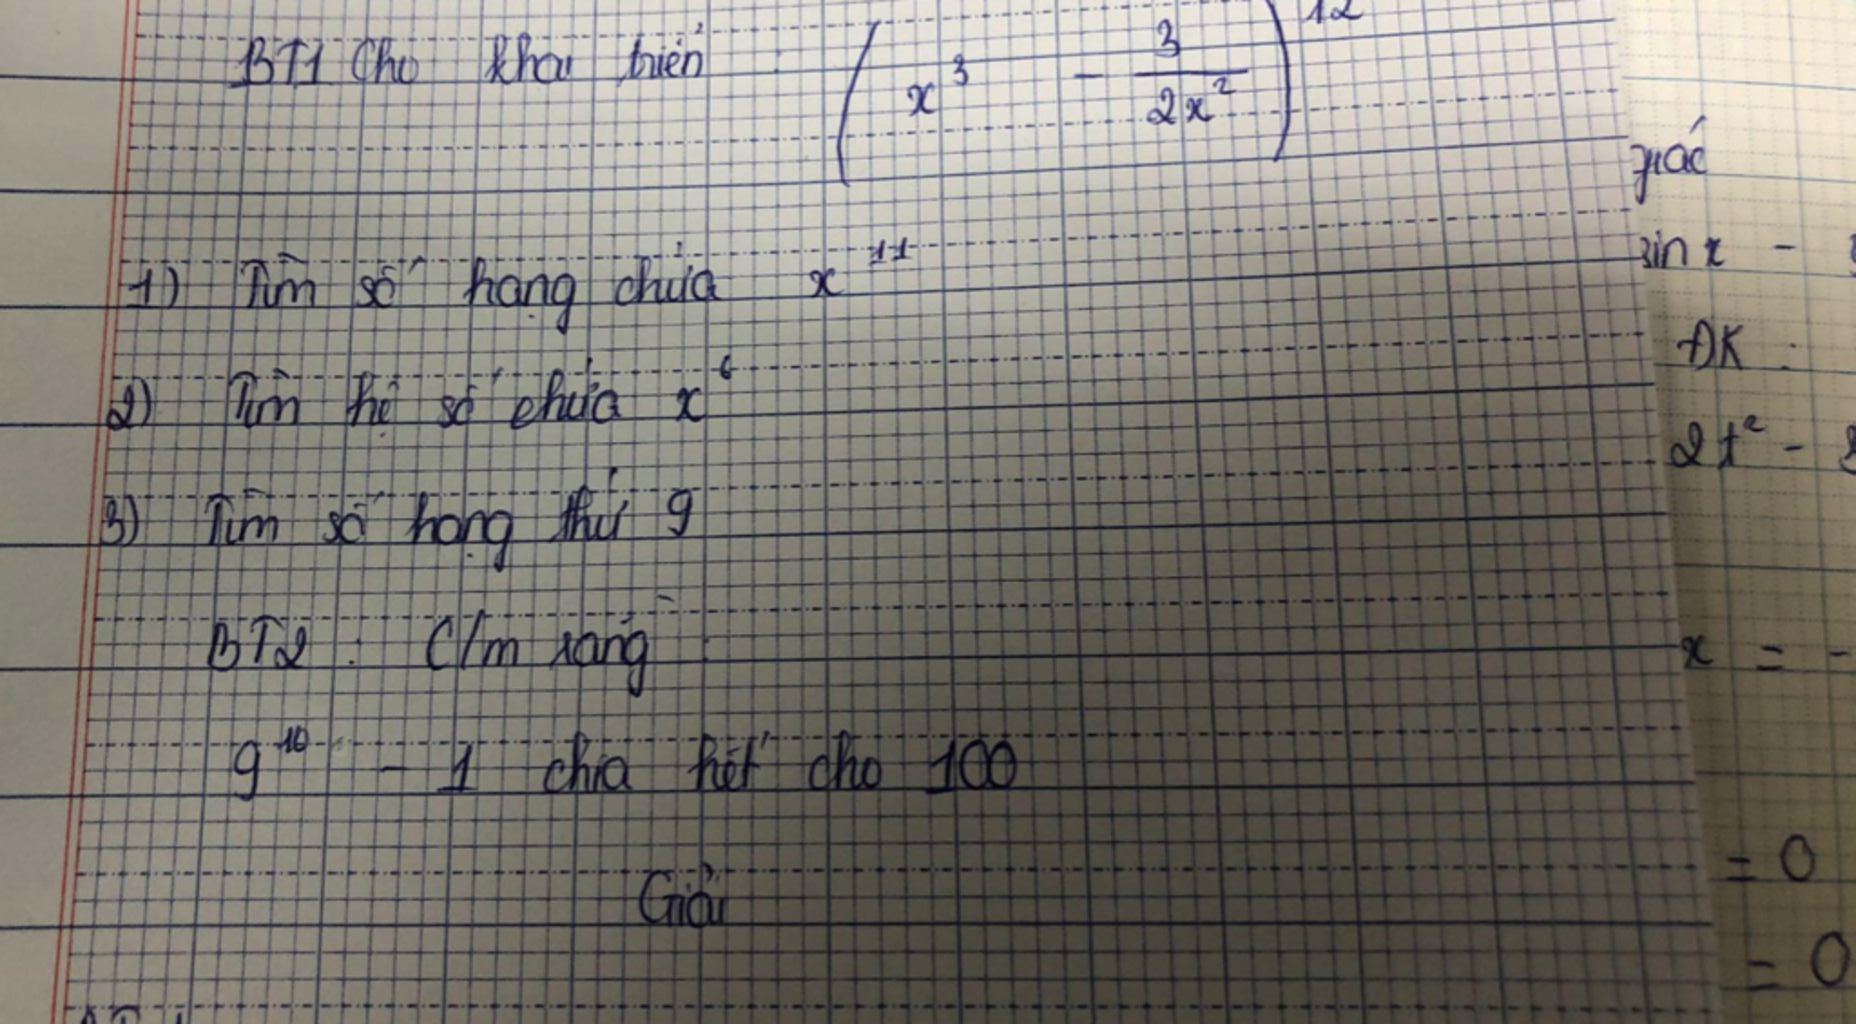 BT1 Cho khai triển : ( x³ - 3/2x² )¹²
1) Tìm số hạng chứa x¹¹
2) Tìm hệ số chứa x⁶
3) Tìm số hạng thứ 9
BT2 : C/m rằng :
9¹⁰ - 1 chia hết cho 100
Giải
giác
sin x -
ĐK :
2t² -
x = -
= 0
= 0